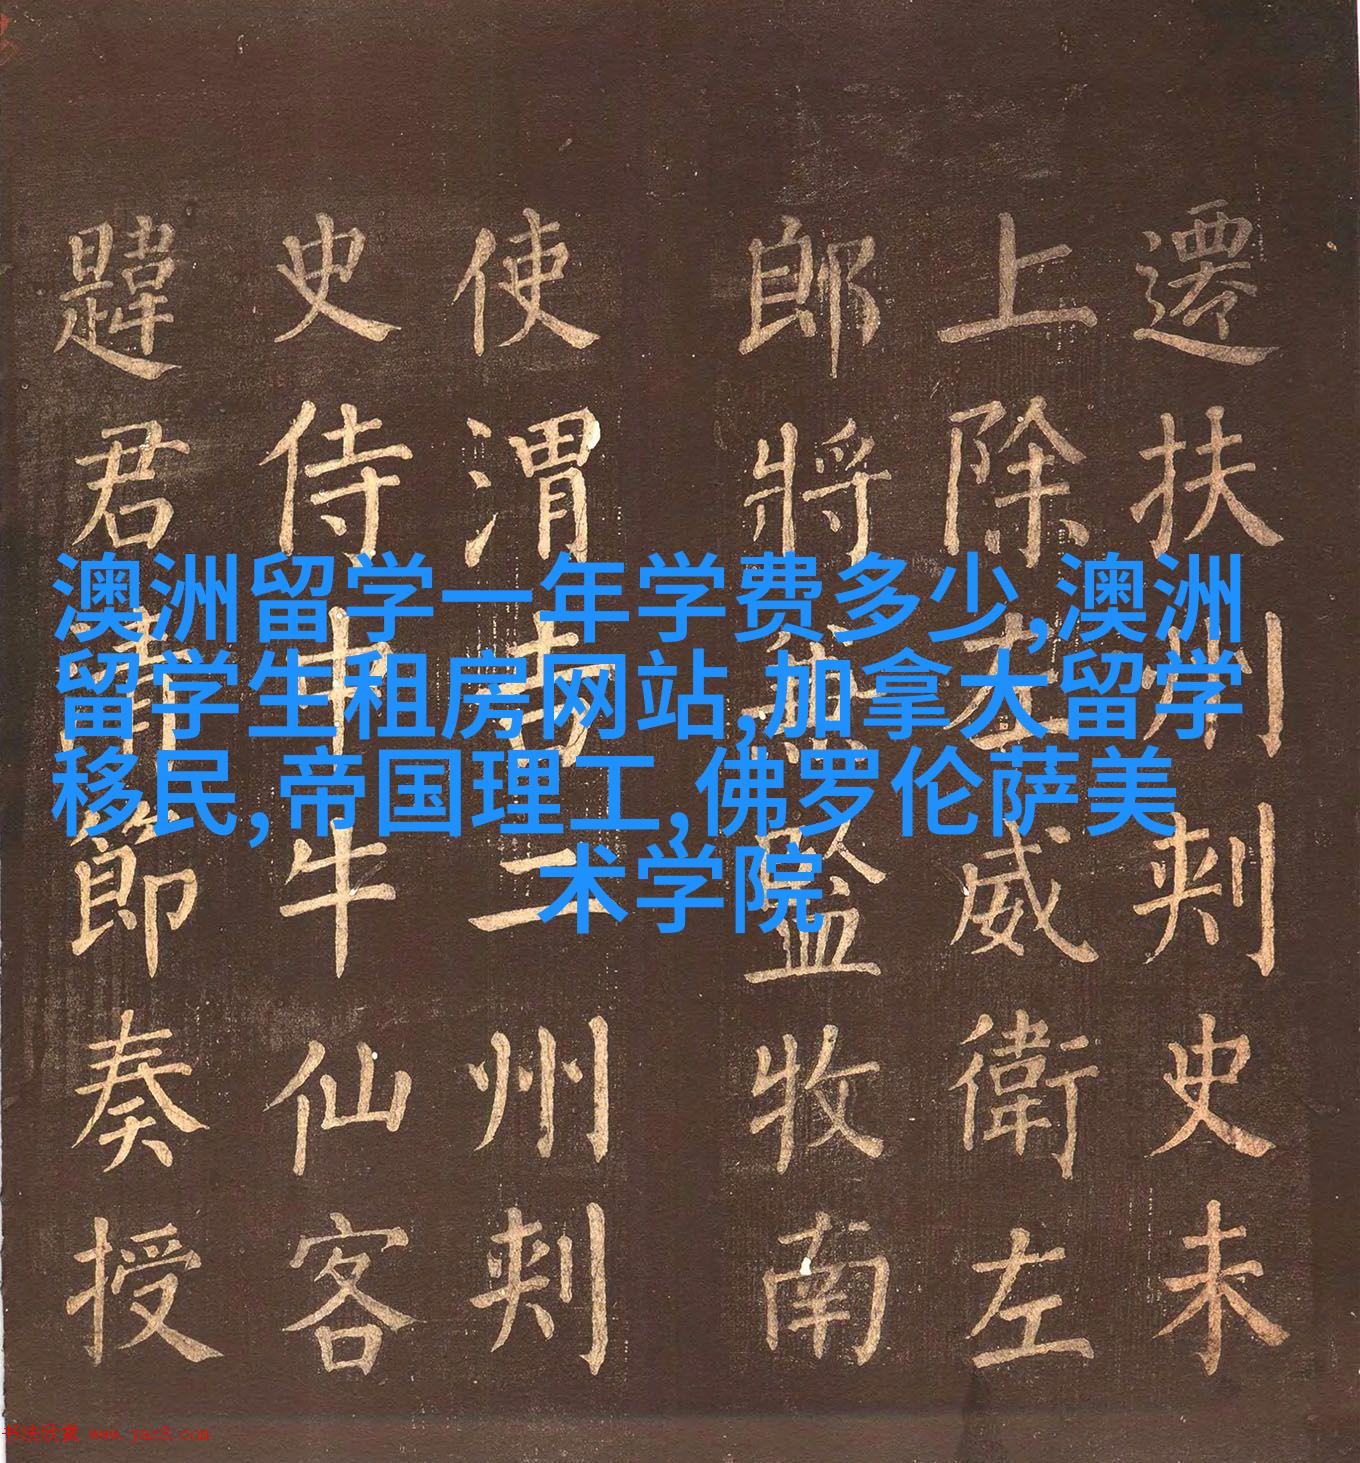 澳洲留学一年学费多少,澳洲
留学生租房网站,加拿大留学
移民,帝国理工,佛罗伦萨美
术学院
遷扶州刾史未
上除左威衛左
郎將兼監牧南
使渭二州刾
史侍中牛仙客
韙君清節奏授
书法欣赏 www.yac8.com